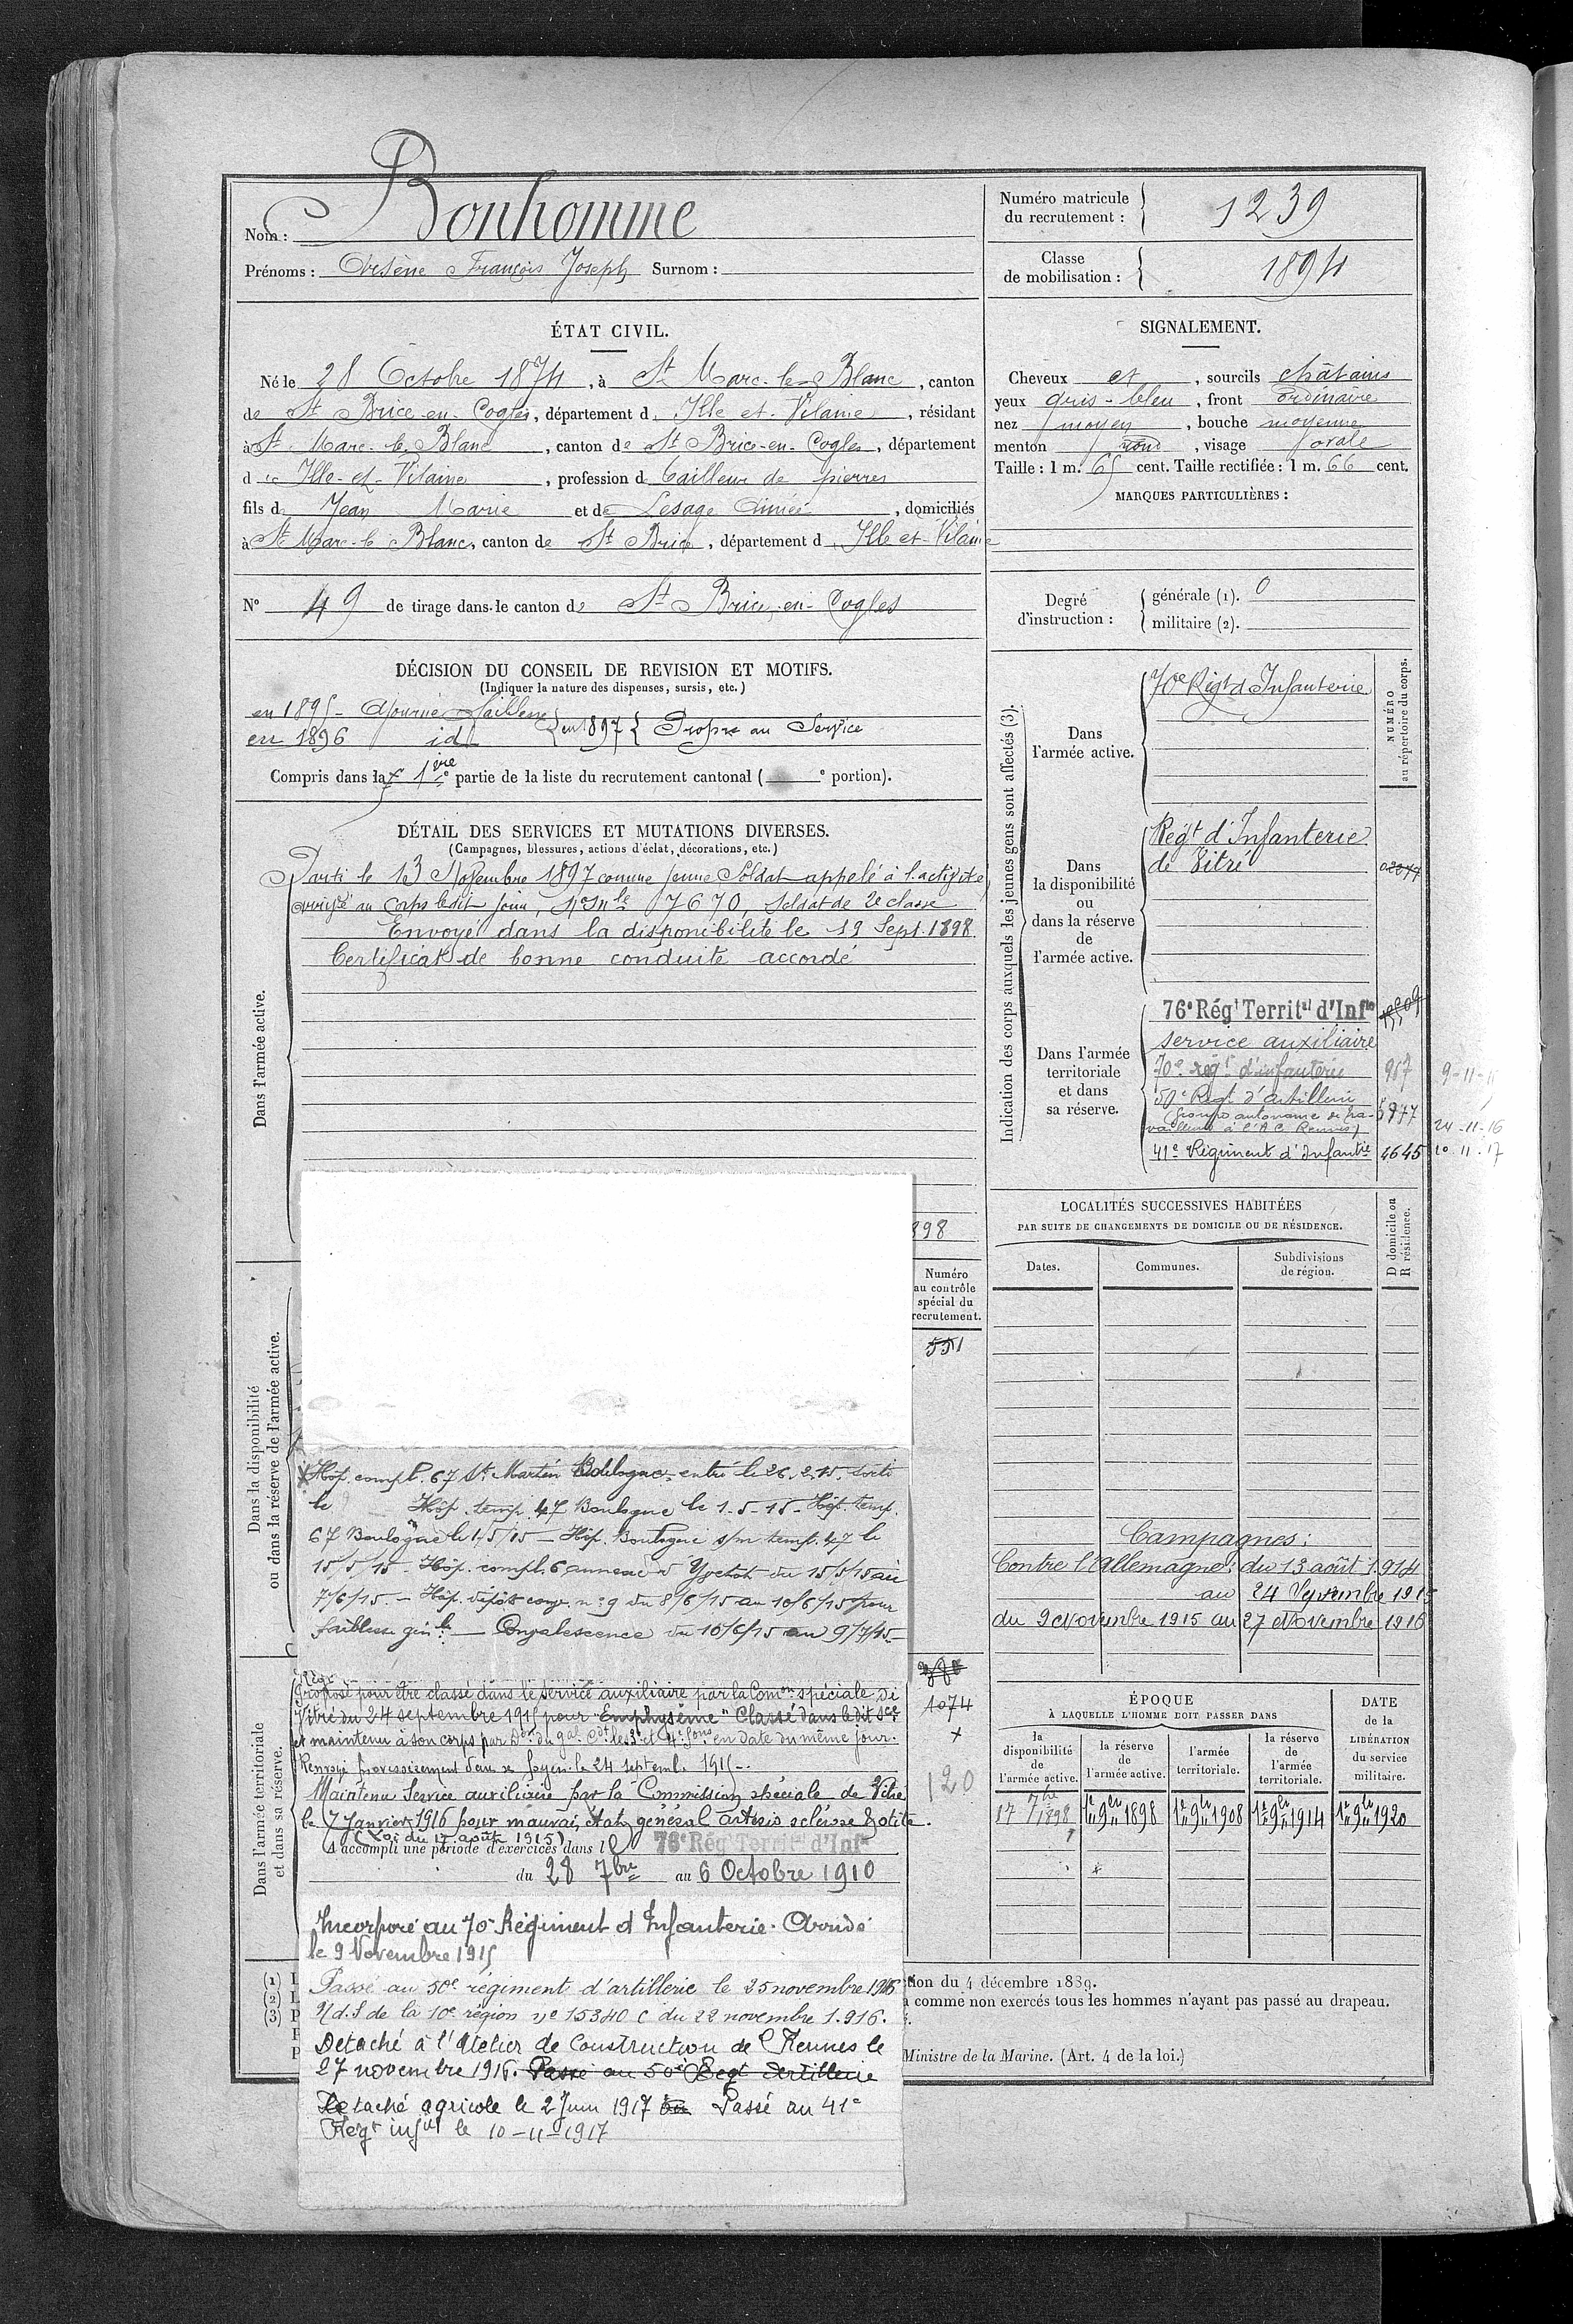 Nom : Bonhomme
Prénoms : Arsène François Joseph Surnom :
Numéro matricule
du recrutement : 1239
Classe
de mobilisation : 1894
ÉTAT CIVIL.
Né le 28 Octobre 1874, à St Marc-le-Blanc, canton
de St Brice-en-Cogles, département d Ille et-Vilaine, résidant
à St Marc-le-Blanc, canton de St Brice-en-Cogles, département
d Ille-et-Vilaine, profession d tailleur de pierres
fils d Jean Marie et de Lesage Aimée, domiciliés
à St Marc-le Blanc, canton de St Brice, département d Ille et-Vilaine
N° 49 de tirage dans le canton de St Brice-en-Cogles
SIGNALEMENT.
Cheveux et, sourcils châtains
yeux gris-bleu, front ordinaire
nez moyen, bouche moyenne
menton rond, visage ovale
Taille : 1 m. 65 cent. Taille rectifiée : 1 m. 66 cent.
MARQUES PARTICULIÈRES :
Degré
d'instruction :
générale (1). 0
militaire (2).
DÉCISION DU CONSEIL DE REVISION ET MOTIFS.
(Indiquer la nature des dispenses, sursis, etc.)
en 1895 - Ajourné faiblesse
en 1896 id
en 1897 Propre au Service
Compris dans la 1re partie de la liste du recrutement cantonal ( e portion).
DÉTAIL DES SERVICES ET MUTATIONS DIVERSES.
(Campagnes, blessures, actions d'éclat, décorations, etc.)
Dans l'armée active.
Parti le 13 Novembre 1897 comme jeune Soldat appelé à l'activité
arrivé au Corps ledit jour, No Mle 7670, Soldat de 2e classe
Envoyé dans la disponibilité le 19 Sept. 1898
Certificat de bonne conduite accordé
898
Indication des corps auxquels les jeunes gens sont affectés (3).
NUMÉRO
au répertoire du corps.
Dans
l'armée active.
70e Rigt d'Infanterie
Dans
la disponibilité
ou
dans la réserve
de
l'armée active.
Régt d'Infanterie
de Vitré
Dans l'armée
territoriale
et dans
sa réserve.
76e Régt Territal d'Infie
service auxiliaire
70e régt d'infanterie 967 9-11-15
50e Regt d'artillerie 5977
(Groupe autonome de tra-
vailleurs à l'A C Rennes) 24-11-16
41e Régiment d'Infantie 4645 10.11.17
Dans la disponibilité
ou dans la réserve de l'armée active.
Numéro
au contrôle
spécial du
recrutement.
551
Hôp. compl. 67 St Martin Boulogne entré le 26.2.15. sorti
le Hôp. temp. 47 Boulogne le 1-5-15 - Hôp. temp.
67 Boulogne le 1/5/15 — Hôp. Boulogne s/m temp. 47 le
15/5/15 - Hôp. compl. 6 annexe d'Yvetot du 15/5/15 au
7/6/15. — Hôp. dépôt conv. n° 9 du 8/6/15 au 10/6/15 pour
faiblesse génle — Convalescence du 10/6/15 au 9/7/15 -
LOCALITÉS SUCCESSIVES HABITÉES
PAR SUITE DE CHANGEMENTS DE DOMICILE OU DE RÉSIDENCE.
Dates.
Communes.
Subdivisions
de région.
D domicile ou
R résidence.
Campagnes :
Contre l'Allemagne : du 13 août 1914
au 24 Septembre 1915
du 9 Novembre 1915 au 27 Novembre 1916
Dans l'armée territoriale
et dans sa réserve.
Proposé pour être classé dans le service auxiliaire par la Comon spéciale de
Vitré du 24 septembre 1915 pour "Emphysème" Classé dans ledit sce
et maintenu à son corps par Don du gal Cdt les 3e et 4e Sons en date du même jour.
Renvoyé provisoirement dans ses foyers le 24 septemb. 1915.
Maintenu Service auxiliaire par la Commission spéciale de Vitré
le 7 Janvier 1916 pour mauvais état général artério sclérose & otite.
(Loi du 17 août 1915)
A accompli une période d'exercices dans le 76e Régt Territal d'Infie
du 28 7bre au 6 Octobre 1910
1074
120
Incorporé au 70e Régiment d'Infanterie. Arrivé
le 9 Novembre 1915
Passé au 50e régiment d'artillerie le 25 novembre 1916
N.d.S de la 10e région N° 15340 C du 22 novembre 1.916.
Detaché à l'Atelier de Construction de Rennes le
27 novembre 1916. Passé au 50e Regt dartillerie
Detaché agricole le 2 Juin 1917 Passé au 41e
Regt infie le 10-11-1917
ÉPOQUE
À LAQUELLE L'HOMME DOIT PASSER DANS
la
disponibilité
de
l'armée active.
la réserve
de
l'armée active.
l'armée
territoriale.
la réserve
de
l'armée
territoriale.
DATE
de la
LIBÉRATION
du service
militaire.
17 7bre 1898
1er 9bre 1898
1er 9bre 1908
1er 9bre 1914
1er 9bre 1920
(1) L
(2) L
(3) P
tion du 4 décembre 1889.
a comme non exercés tous les hommes n'ayant pas passé au drapeau.
Ministre de la Marine. (Art. 4 de la loi.)